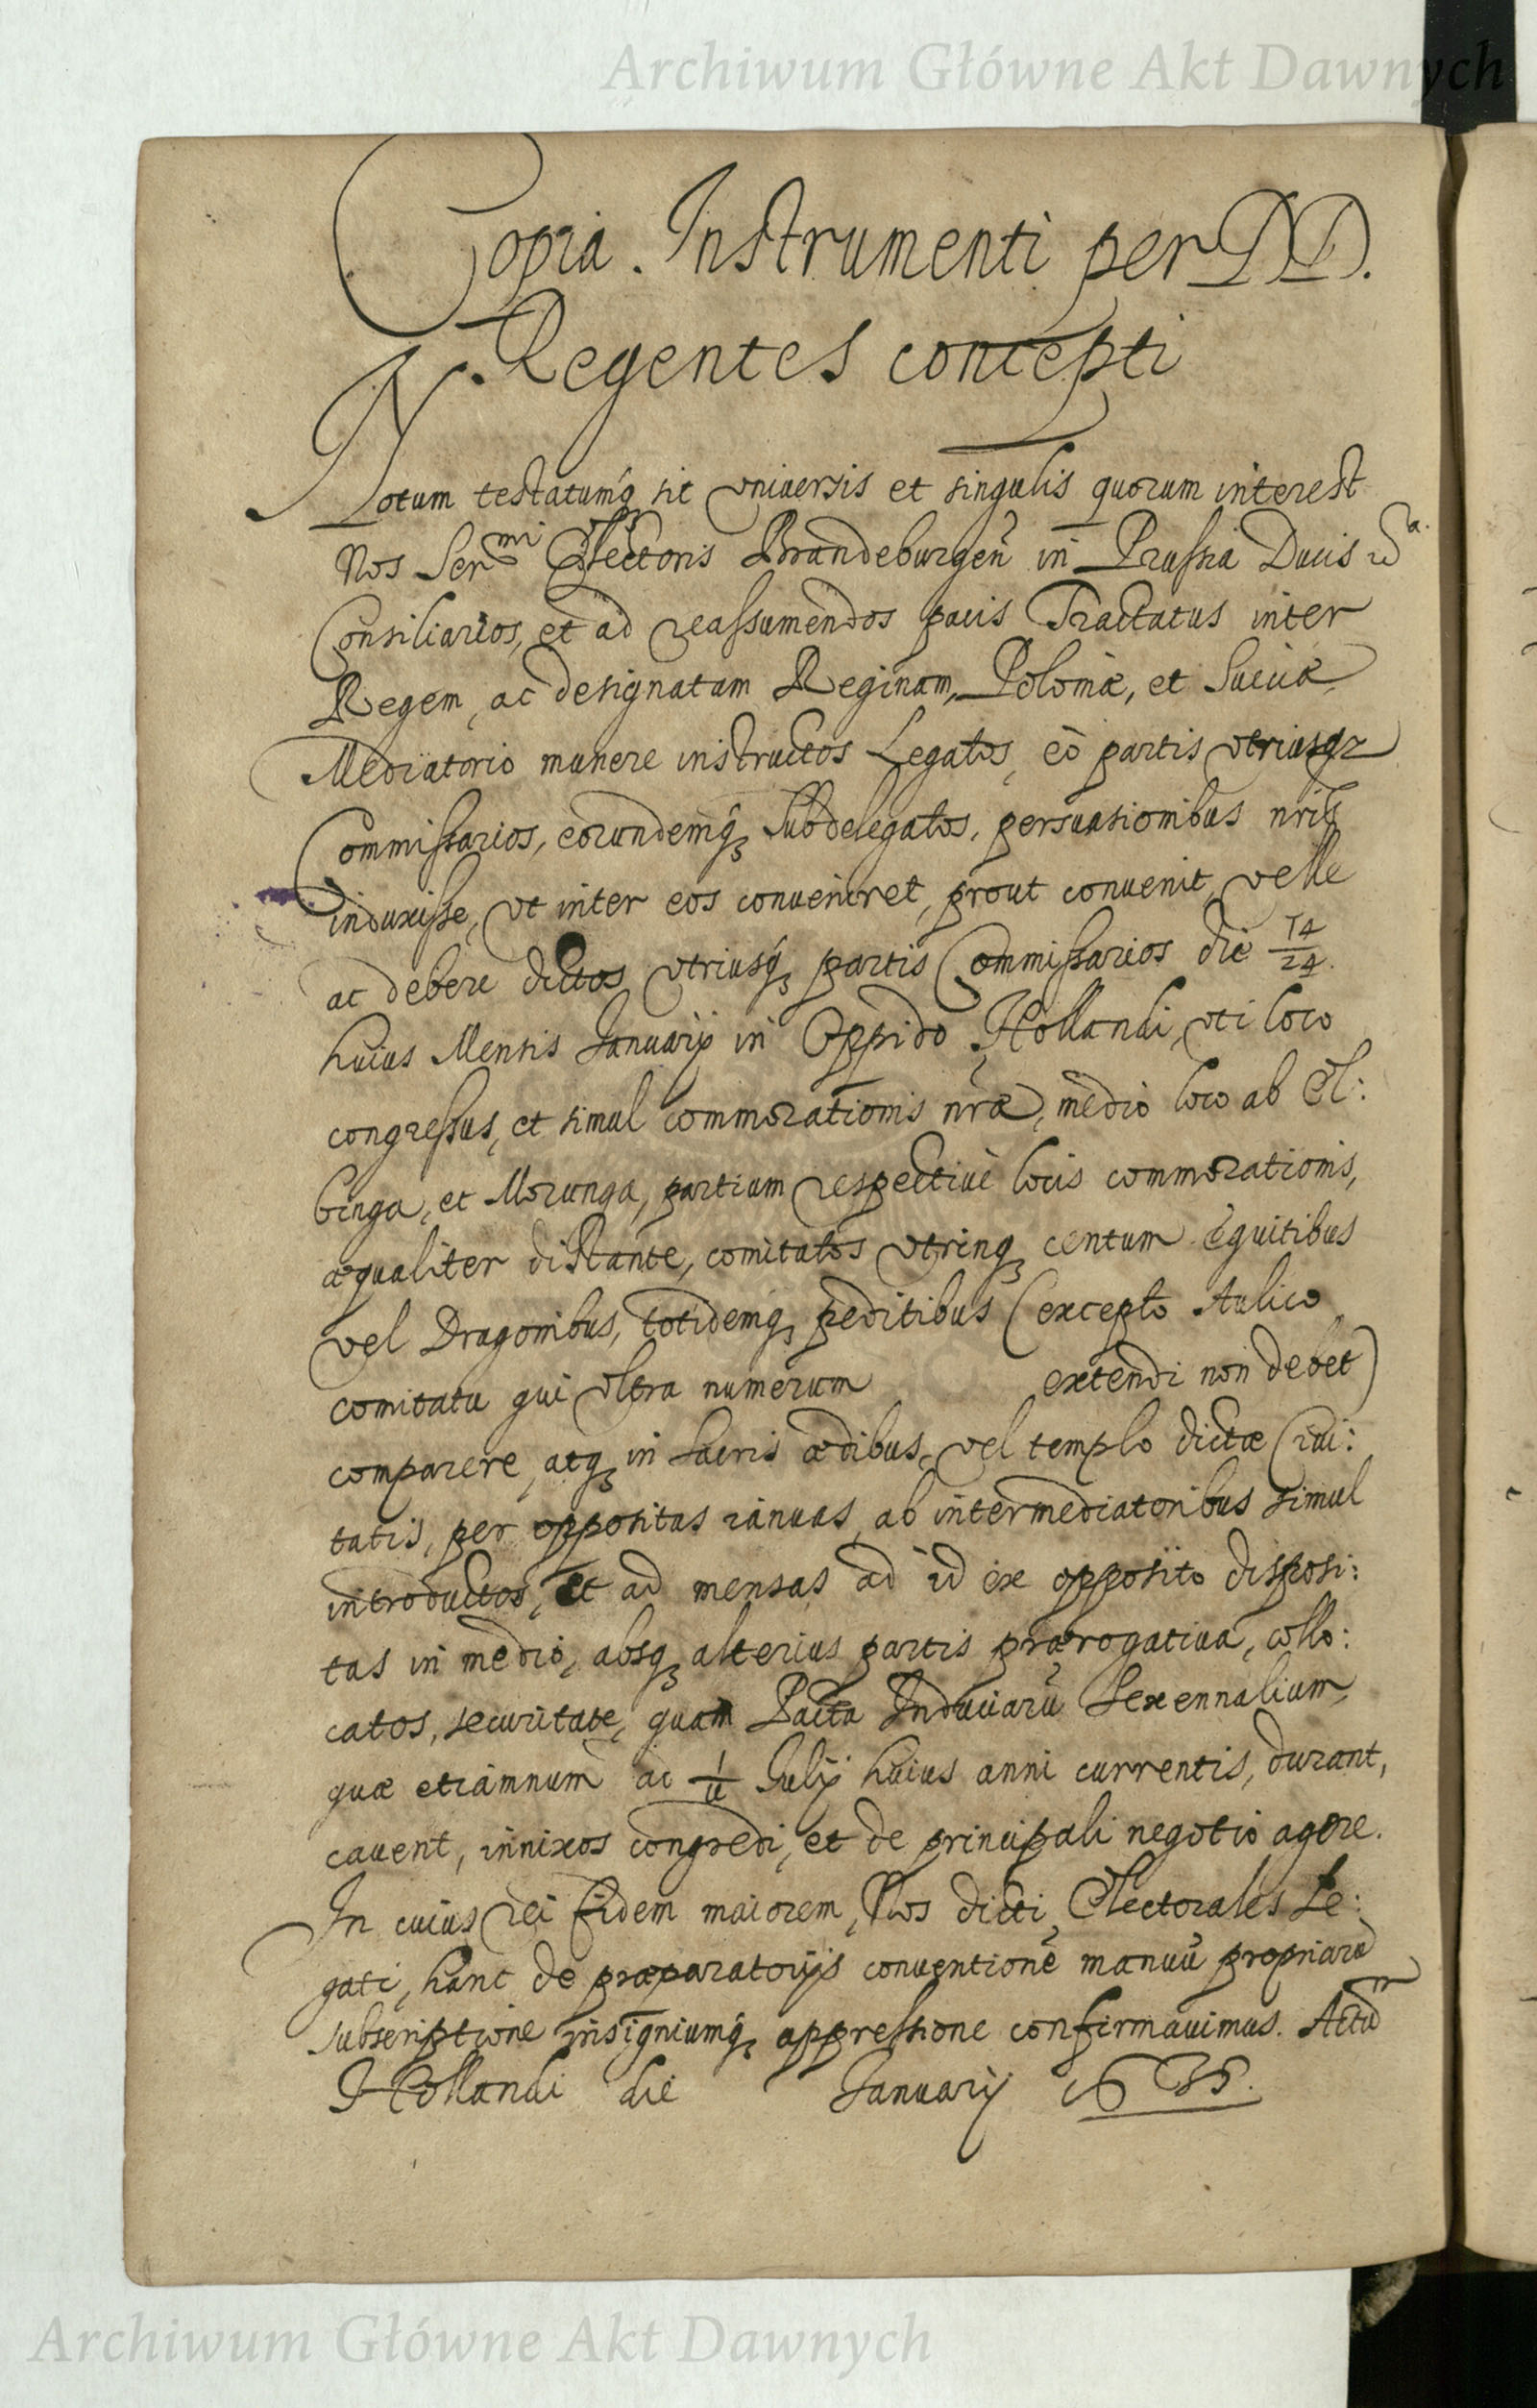 Archiwum Główne Akt Dawnych
Copia Instrumenti per DD.
Regentes concepti
Notum testatumq́ sit vniuersis et singulis quorum interest
Nos Ser.mi Electoris Brandeburgeñ in Prussia Ducis
Consiliarios, et ad reassumendos pacis Tractatus inter
Regem, ac designatam Reginam, Poloniæ, et Sueciæ,
Mediatorio munere instructos Legatos, eò partis vtriusq
Commissarios, eorundemq́ Subdelegatos, persuasionibus nris̃
induxisse, vt inter eos conueniret, prout conuenit, velle
ac debere dictos vtriusq́ partis Commissarios die 14/24.
huius Mensis Januarij in Oppido Hollandi, vti loco
congressus, et simul commorationis nr̃æ, medio loco ab El:
binga, et Morunga, partium respectiuè locis commorationis,
æqualiter distante, comitatos vtrinq centum equitibus
vel Dragonibus, totidemq́ peditibus (excepto Aulico
comitatu qui vltra numerum extendi non debet)
comparere, atq in sacris ædibus, vel templo dictæ Ciui:
tatis, per oppositas ianuas, ab intermediatoribus simul
introductos, et ad mensas ad id ex opposito disposi:
tas in medio, absq alterius partis prærogatiua, collo:
catos, securitate, quam Pacta Induciarũ Sexennalium,
quæ etiamnum ad 1/11 Julij huius anni currentis, durant,
cauent, innixos congredi, et de principali negotio agere.
In cuius rei fidem maiorem, Nos dicti, Electorales Le:
gati, hanc de præparatorijs conuentionẽ manuũ propriarũ
subscriptione insigniumq́ appressione confirmauimus. Actũm
Hollandi die Januarij 1635.
Archiwum Główne Akt Dawnych